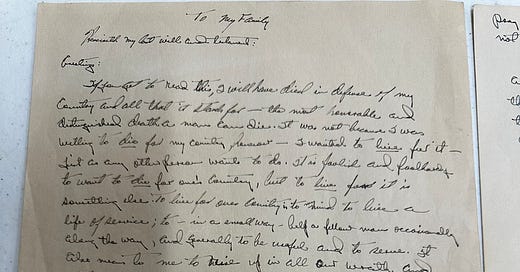 To My Family
Herewith my last will and testament:
Greetings:
If you get to read this, I will have died in defense of my
Country and all that it stands for — the most honorable and
distinguished death a man can die. It was not because I was
willing to die for my country however — I wanted to live for it —
just as any other person wants to do. It is foolish and foolhardy
to want to die for one's country, but to live for it is
something else. To live for one's country is to my mind to live a
life of service; to — in a small way — help a fellow man occasionally
along the way, and generally to be useful and to serve. It
also means to me to rise up in all our wrath and
not